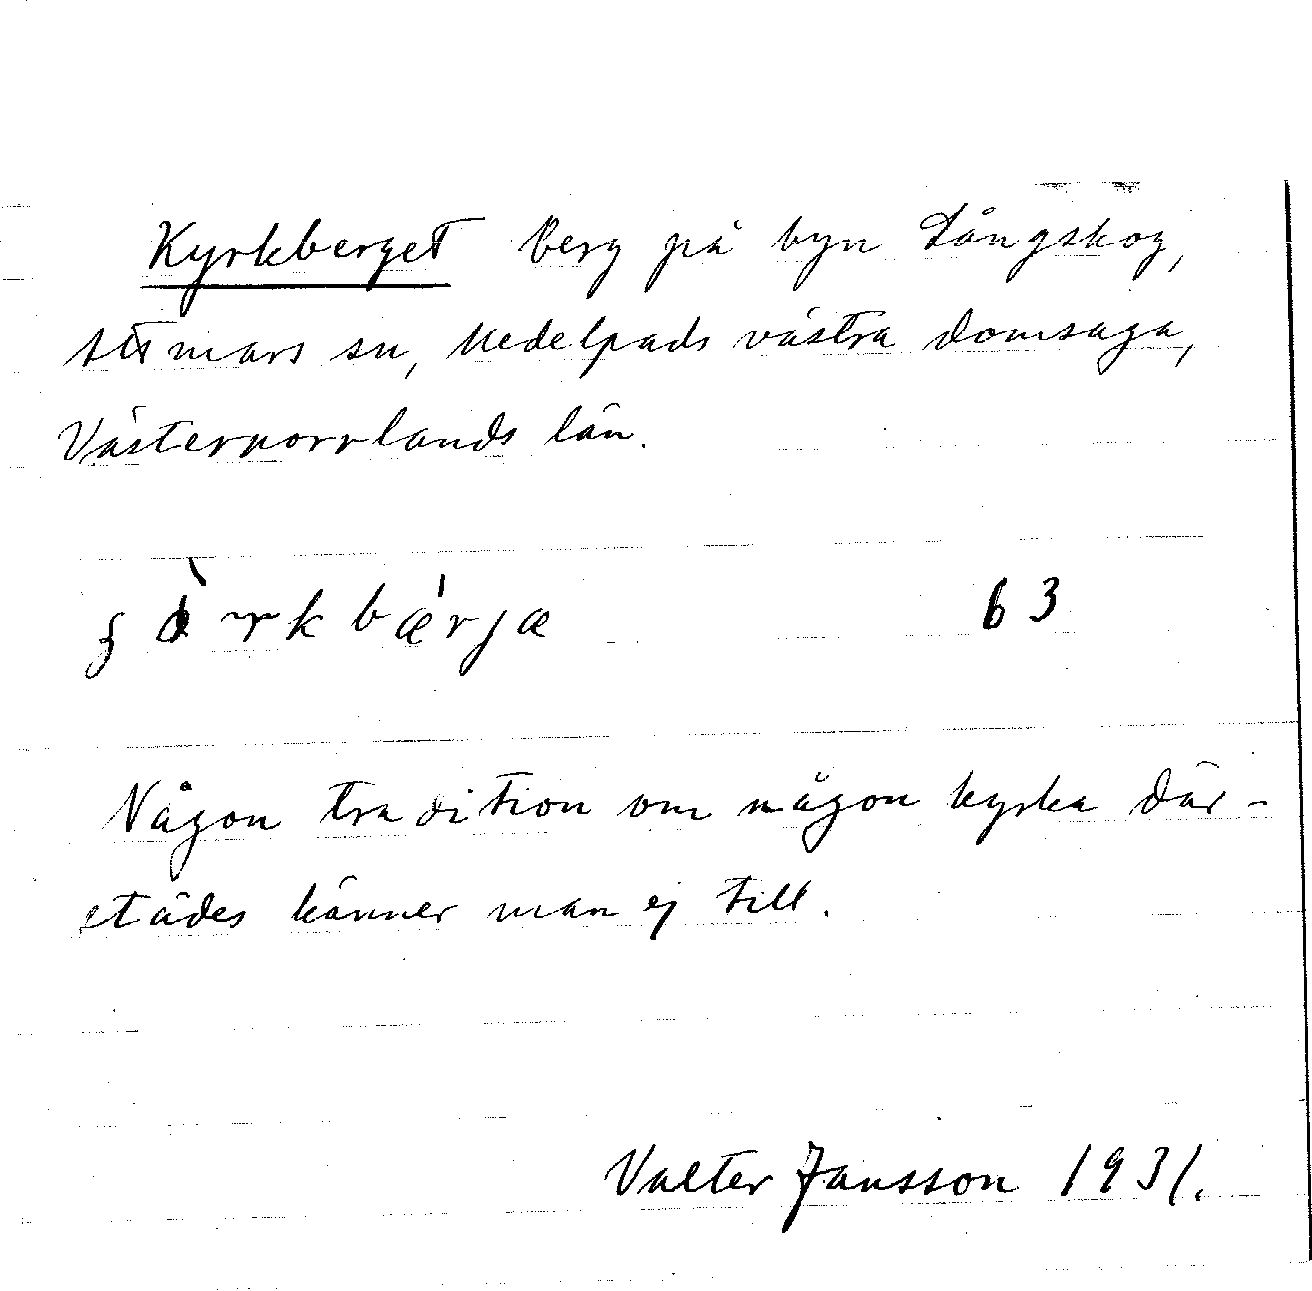 Kyrkberget berg på byn Långskog,
Attmars sn, Medelpads västra domsaga,
Västernorrlands län.
63
Någon tradition om någon kyrka där-
städes känner man ej till.
Valter Jansson 1931.